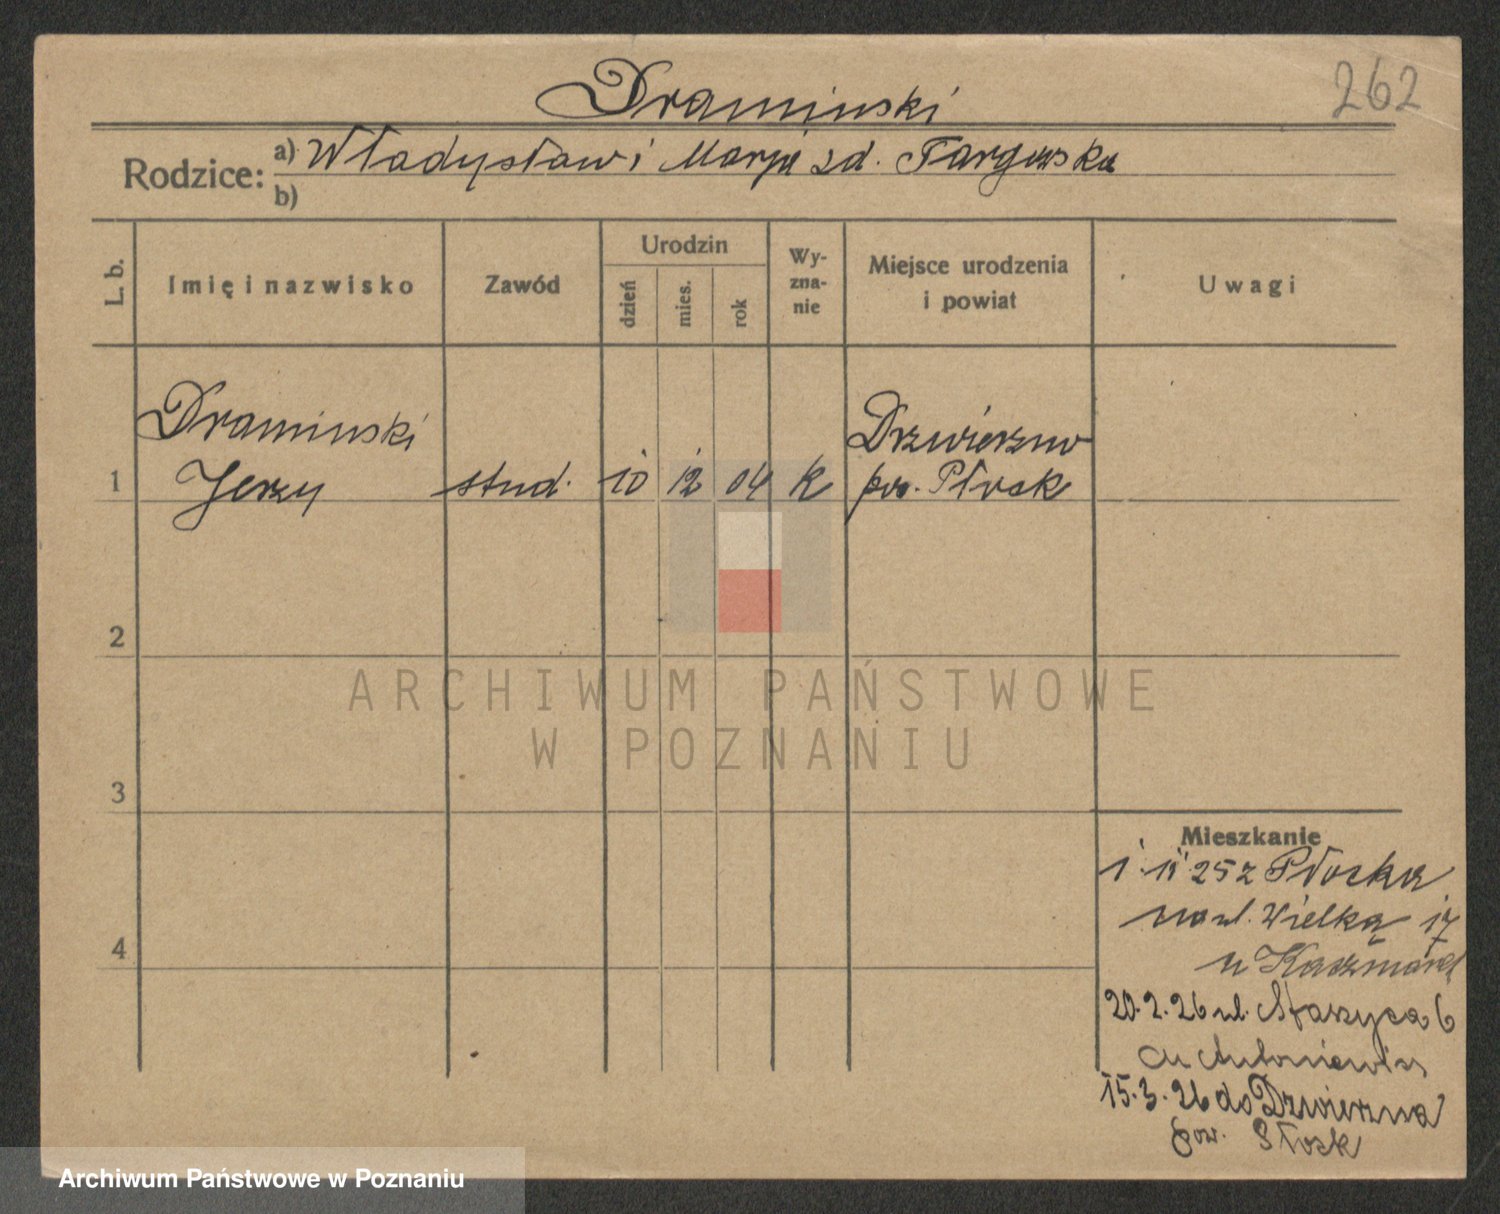 262
Draminski
Rodzice:
a) Władysław i Marja zd. Targowska
b)
L. b.
Imię i nazwisko
Zawód
Urodzin
dzień
mies.
rok
Wy-
zna-
nie
Miejsce urodzenia
i powiat
Uwagi
Draminski
Drzwierzno
1 Jerzy stud. 10 12 04 k pow. Płock
2
ARCHIWUM PAŃSTWOWE
W POZNANIU
3
4
Mieszkanie
1 11 25 z Płocka
na ul. Wielką 17
u
20.2.26 ul. Staszyca 6
u Antoniewicz
15.3.26 do Drzwierzna
pow. Płock
Archiwum Państwowe w Poznaniu